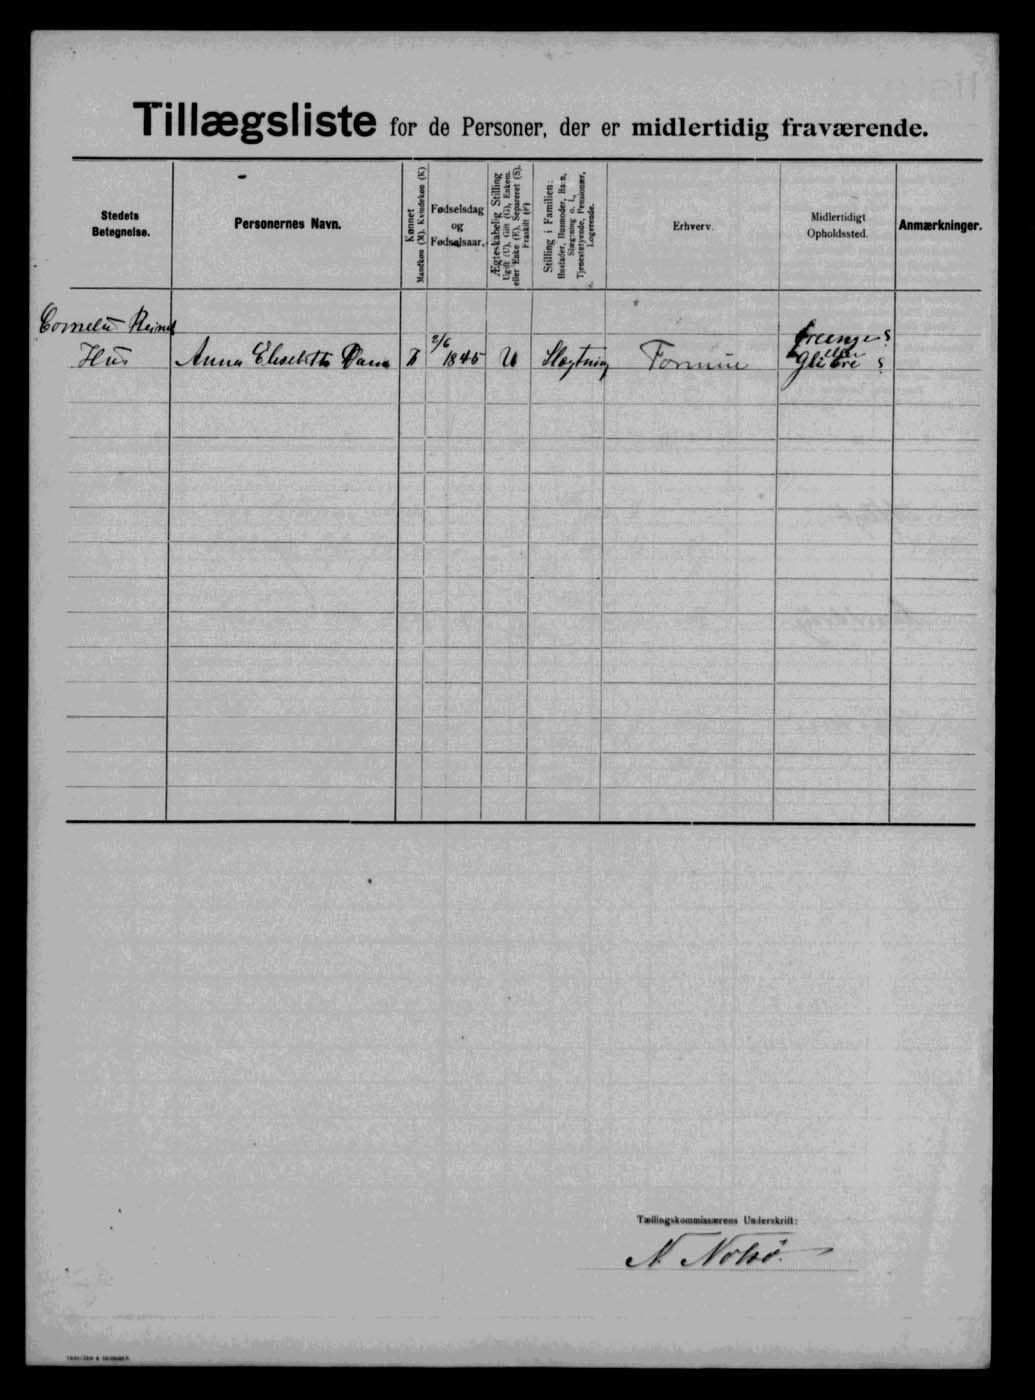 Tillægsliste for de Personer, der er midlertidig fraværende.
Stedets Betegnelse.
Personernes Navn.
Kønnet
Mandkøn (M). Kvindekøn (K)
Fødselsdag
og
Fødselsaar.
Ægteskabelig Stilling
Ugift (U), Gift (G), Enkem.
eller Enke (E), Separeret (S),
Fraskilt (F)
Stilling i Familien:
Husfader, Husmoder, Barn,
Slægtning o. l.,
Tjenestetyende, Pensionær,
Logerende.
Erhverv.
Midlertidigt
Opholdssted.
Anmærkninger.
Hus Anna Elisabeth 2/6 1845 U Slægtning
Tællingskommissærens Underskrift:
N. Nolsø.